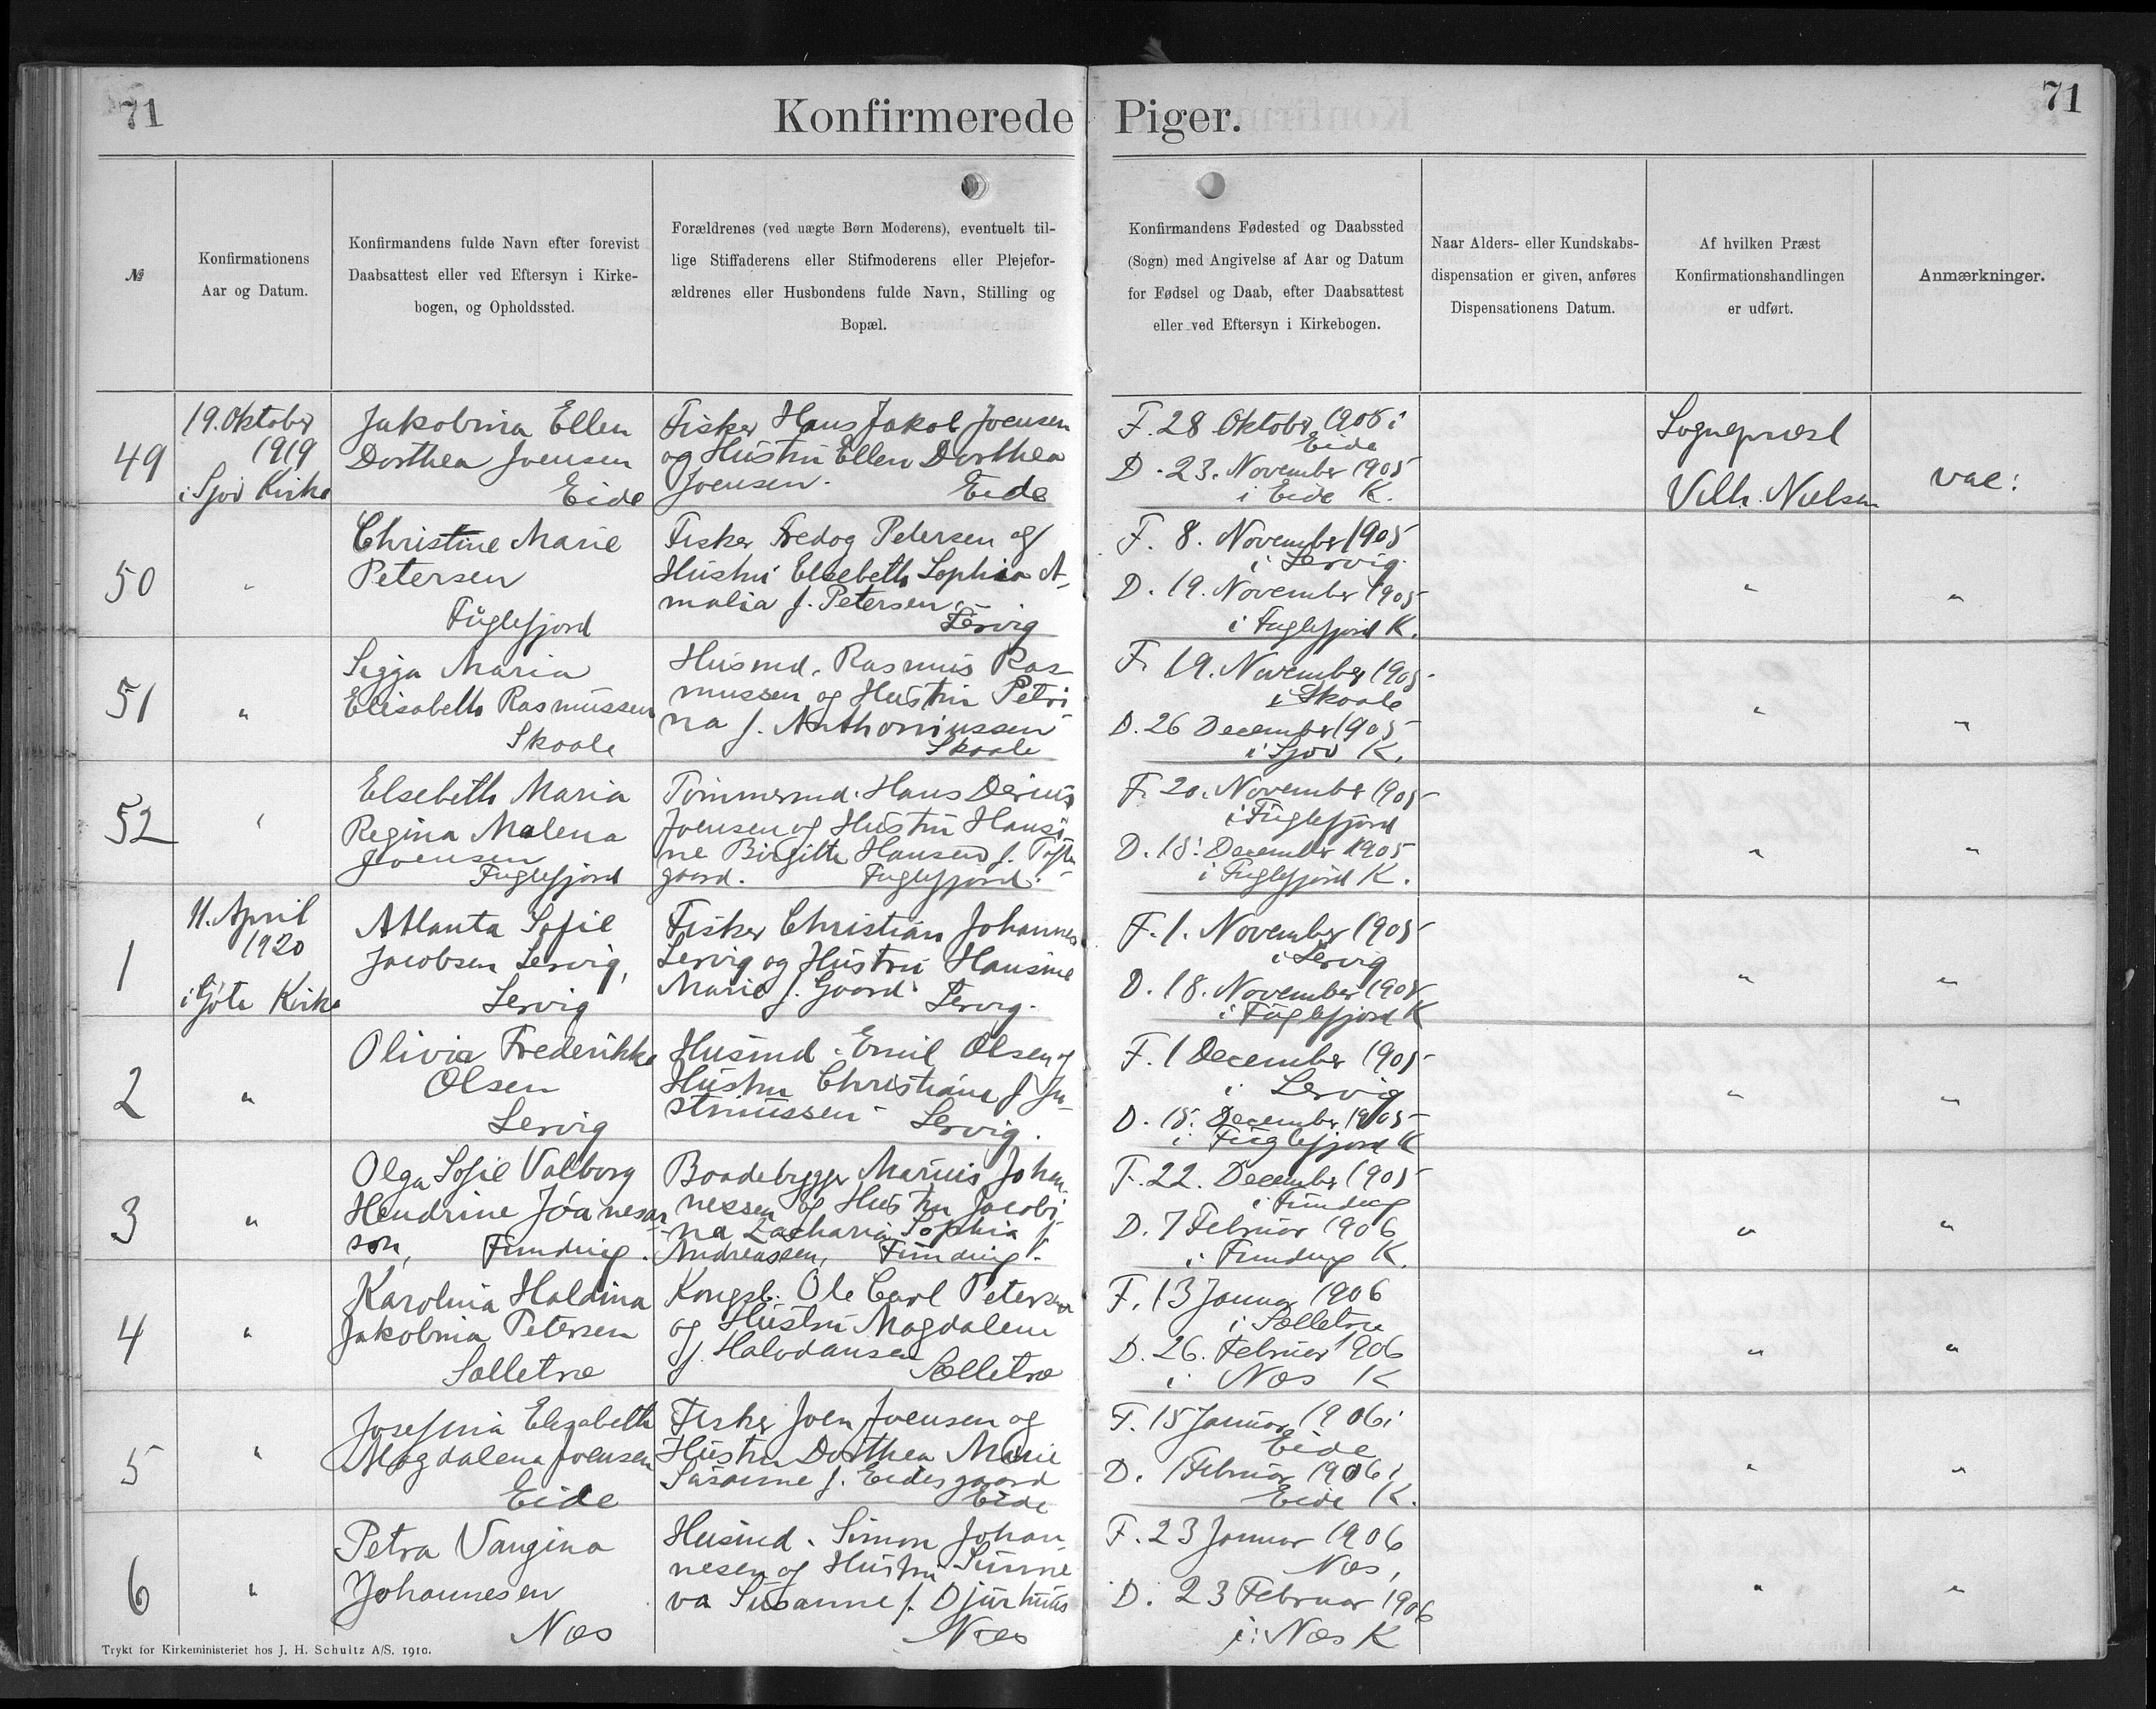 71
Konfirmerede Piger.
71
№
Konfirmationens
Aar og Datum.
Konfirmandens fulde Navn efter forevist
Daabsattest eller ved Eftersyn i Kirke-
bogen, og Opholdssted.
Forældrenes (ved uægte Børn Moderens), eventuelt til-
lige Stiffaderens eller Stifmoderens eller Plejefor-
ældrenes eller Husbondens fulde Navn, Stilling og
Bopæl.
Konfirmandens Fødested og Daabssted
(Sogn) med Angivelse af Aar og Datum
for Fødsel og Daab, efter Daabsattest
eller ved Eftersyn i Kirkebogen.
Naar Alders- eller Kundskabs-
dispensation er given, anføres
Dispensationens Datum.
Af hvilken Præst
Konfirmationshandlingen
er udført.
Anmærkninger.
49
19. Oktober
1919
i Sjov Kirke
Jakobina Ellen
Dorthea Joensen
Eide
Fisker Hans Jakob Joensen
og Hustru Ellen Dorthea
Joensen. Eide
F. 28 Oktober 1905 i
Eide
D. 23. November 1905
i Eide K.
Sognepræst
Vilh. Nielsen
vac:
50
"
Christine Marie
Petersen
Fuglefjord
Fisker Fredog Petersen og
Hustru Elsebeth Sophia A-
malia f. Petersen.
Lervig
F. 8. November 1905
i Lervig.
D. 19. November 1905
i Fuglefjord K.
"
"
51
"
Sigga Maria
Elisabeth Rasmussen
Skaale
Husmd. Rasmus Ras
mussen og Hustru Petri
na f. Anthoniussen
Skaale
F. 19. November 1905
i Skaale
D. 26 December 1905
i Sjov K.
"
"
52
"
Elsebeth Maria
Regina Malena
Joensen
Fuglefjord
Tømmermd. Hans Derius
Joensen og Hustru Hansi
ne Birgitte Hansen f. Tofte
gaard. Fuglefjord.
F. 20. November 1905
i Fuglefjord
D. 15. December 1905
i Fuglefjord K.
"
"
1
11. April
1920
i Gøte Kirke
Atlanta Sofie
Jacobsen Lervig,
Lervig
Fisker Christian Johannes
Lervig og Hustru Hansine
Marie f. Gaard. Lervig.
F. 1. November 1905
i Lervig
D. 18. November 1905
i Fuglefjord K
"
"
2
"
Olivia Frederikke
Olsen
Lervig
Husmd. Emil Olsen og
Hustru Christiane f. Ju-
stinussen Lervig.
F. 1 December 1905
i Lervig
D. 15. December 1905
i Fuglefjord K
"
"
3
"
Olga Sofie Valborg
Hendrine Jóannesar
son, Funding.
Baadebygger Marius Johan
nessen og Hustru Jacobi
na Zacharia Sophia f.
Andreassen, Funding.
F. 22. December 1905
i Funding
D. 7 Februar 1906
i Funding K.
"
"
4
"
Karolina Haldina
Jakobina Petersen
Selletræ
Kongsb. Ole Carl Petersen
og Hustru Magdalene
f. Halvdansen
Selletræ
F. 13 Januar 1906
i Selletræ
D. 26. Februar 1906
i Næs K
"
"
5
"
Josefina Elizabeth
Magdalena Joensen
Eide
Fisker Joen Joensen og
Hustru Dorthea Marie
Susanne f. Eidesgaard
Eide
F. 15 Januar 1906 i
Eide
D. 1 Februar 1906 i
Eide K.
"
"
6
"
Petra Vangina
Johannesen
Næs
Husmd. Simon Johan
nesen og Hustru Sunne
va Susanne f. Djurhuus
Næs
F. 23 Januar 1906
Næs,
D. 23 Februar 1906
i Næs K
"
"
Trykt for Kirkeministeriet hos J. H. Schultz A/S. 1910.